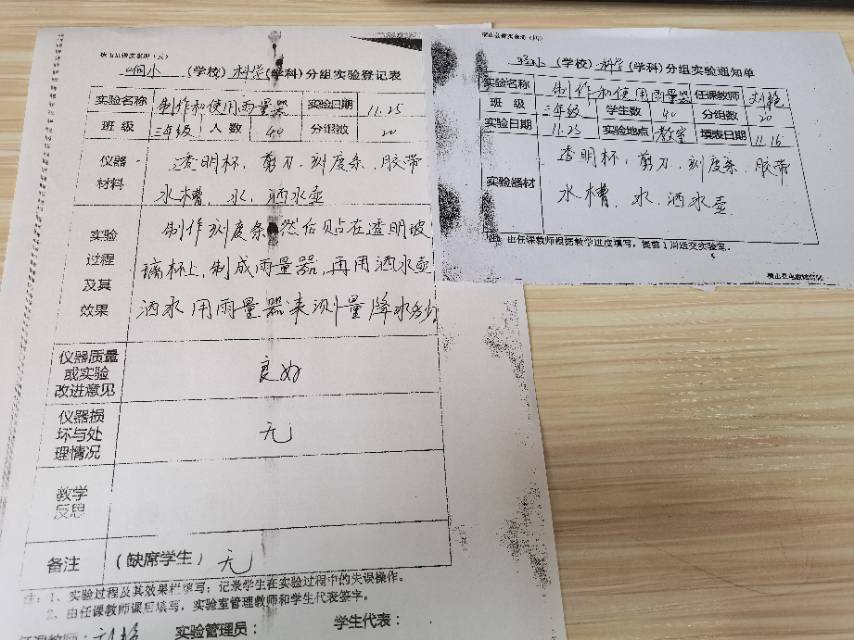 (学校)科学(学科)分组实验登记表
实验名称 制作和使用雨量器 实验日期 11.25
班 级 三年级 人 数 40 分组数 20
仪器材料
透明杯、剪刀、刻度条、胶带
水槽、水、洒水壶
实验过程及其效果
制作刻度条 然后贴在透明玻
璃杯上,制成雨量器,再用洒水壶
洒水 用雨量器来测量降水多少
仪器质量或实验改进意见 良好
仪器损坏与处理情况 无
教学反思
备注 (缺席学生) 无
注:1、实验过程及其效果栏填写:记录学生在实验过程中的失误操作。
2、由任课教师课后填写,实验室管理教师和学生代表签字。
任课教师:刘艳 实验管理员: 学生代表:
(学校)科学(学科)分组实验通知单
实验名称 制作和使用雨量器 任课教师 刘艳
班 级 三年级 学生数 40 分组数 20
实验日期 11.25 实验地点 教室 填表日期 11.16
实验器材
透明杯、剪刀、刻度条、胶带
水槽、水、洒水壶
注:由任课教师根据教学进度填写,提前1周送交实验室。